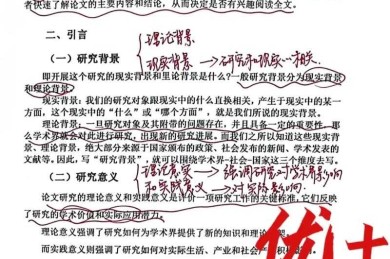 者快速了解论文的主要内容和结论，从而决定是否有兴趣阅读全文。
二、引言
理论背景
（一）研究背景
现实背景 → 研究和现实
即开展这个研究的现实背景和里论背景是什么？一般研究背景分为现实背景
和理论背景。
现实背景：我们的研究对象跟现实中的什么直接相关，产生于现实中的某一
方面，这个现实中的“什么”或“哪个方面”，就是我们所说的现实背景。
理论背景：一旦研究对象及其附带的问题存在，并且具备一定的重要性，那
么学术界就会对此进行研究，出现新的研究进展，而我们之所以知道这些现实背
景、理论背景，绝大部分来源于国家颁布的政策、社会发布的新闻、学术发表的
文献等。因此，写“研究背景”，就可以围绕学术界-社会-国家这三个维度去写。
理论意义 → 强调研究对学术影响
（二）研究意义
和实践意义 → 对实际影响
论文研究的理论意义和实践意义是评价一项研究工作的关键标准，它们反映
了研究的学术价值和实际应用潜力。
理论意义强调了研究如何为学术界提供了新的知识和理论
而实践意义则强调了研究如何对实际生活、产业和社会产